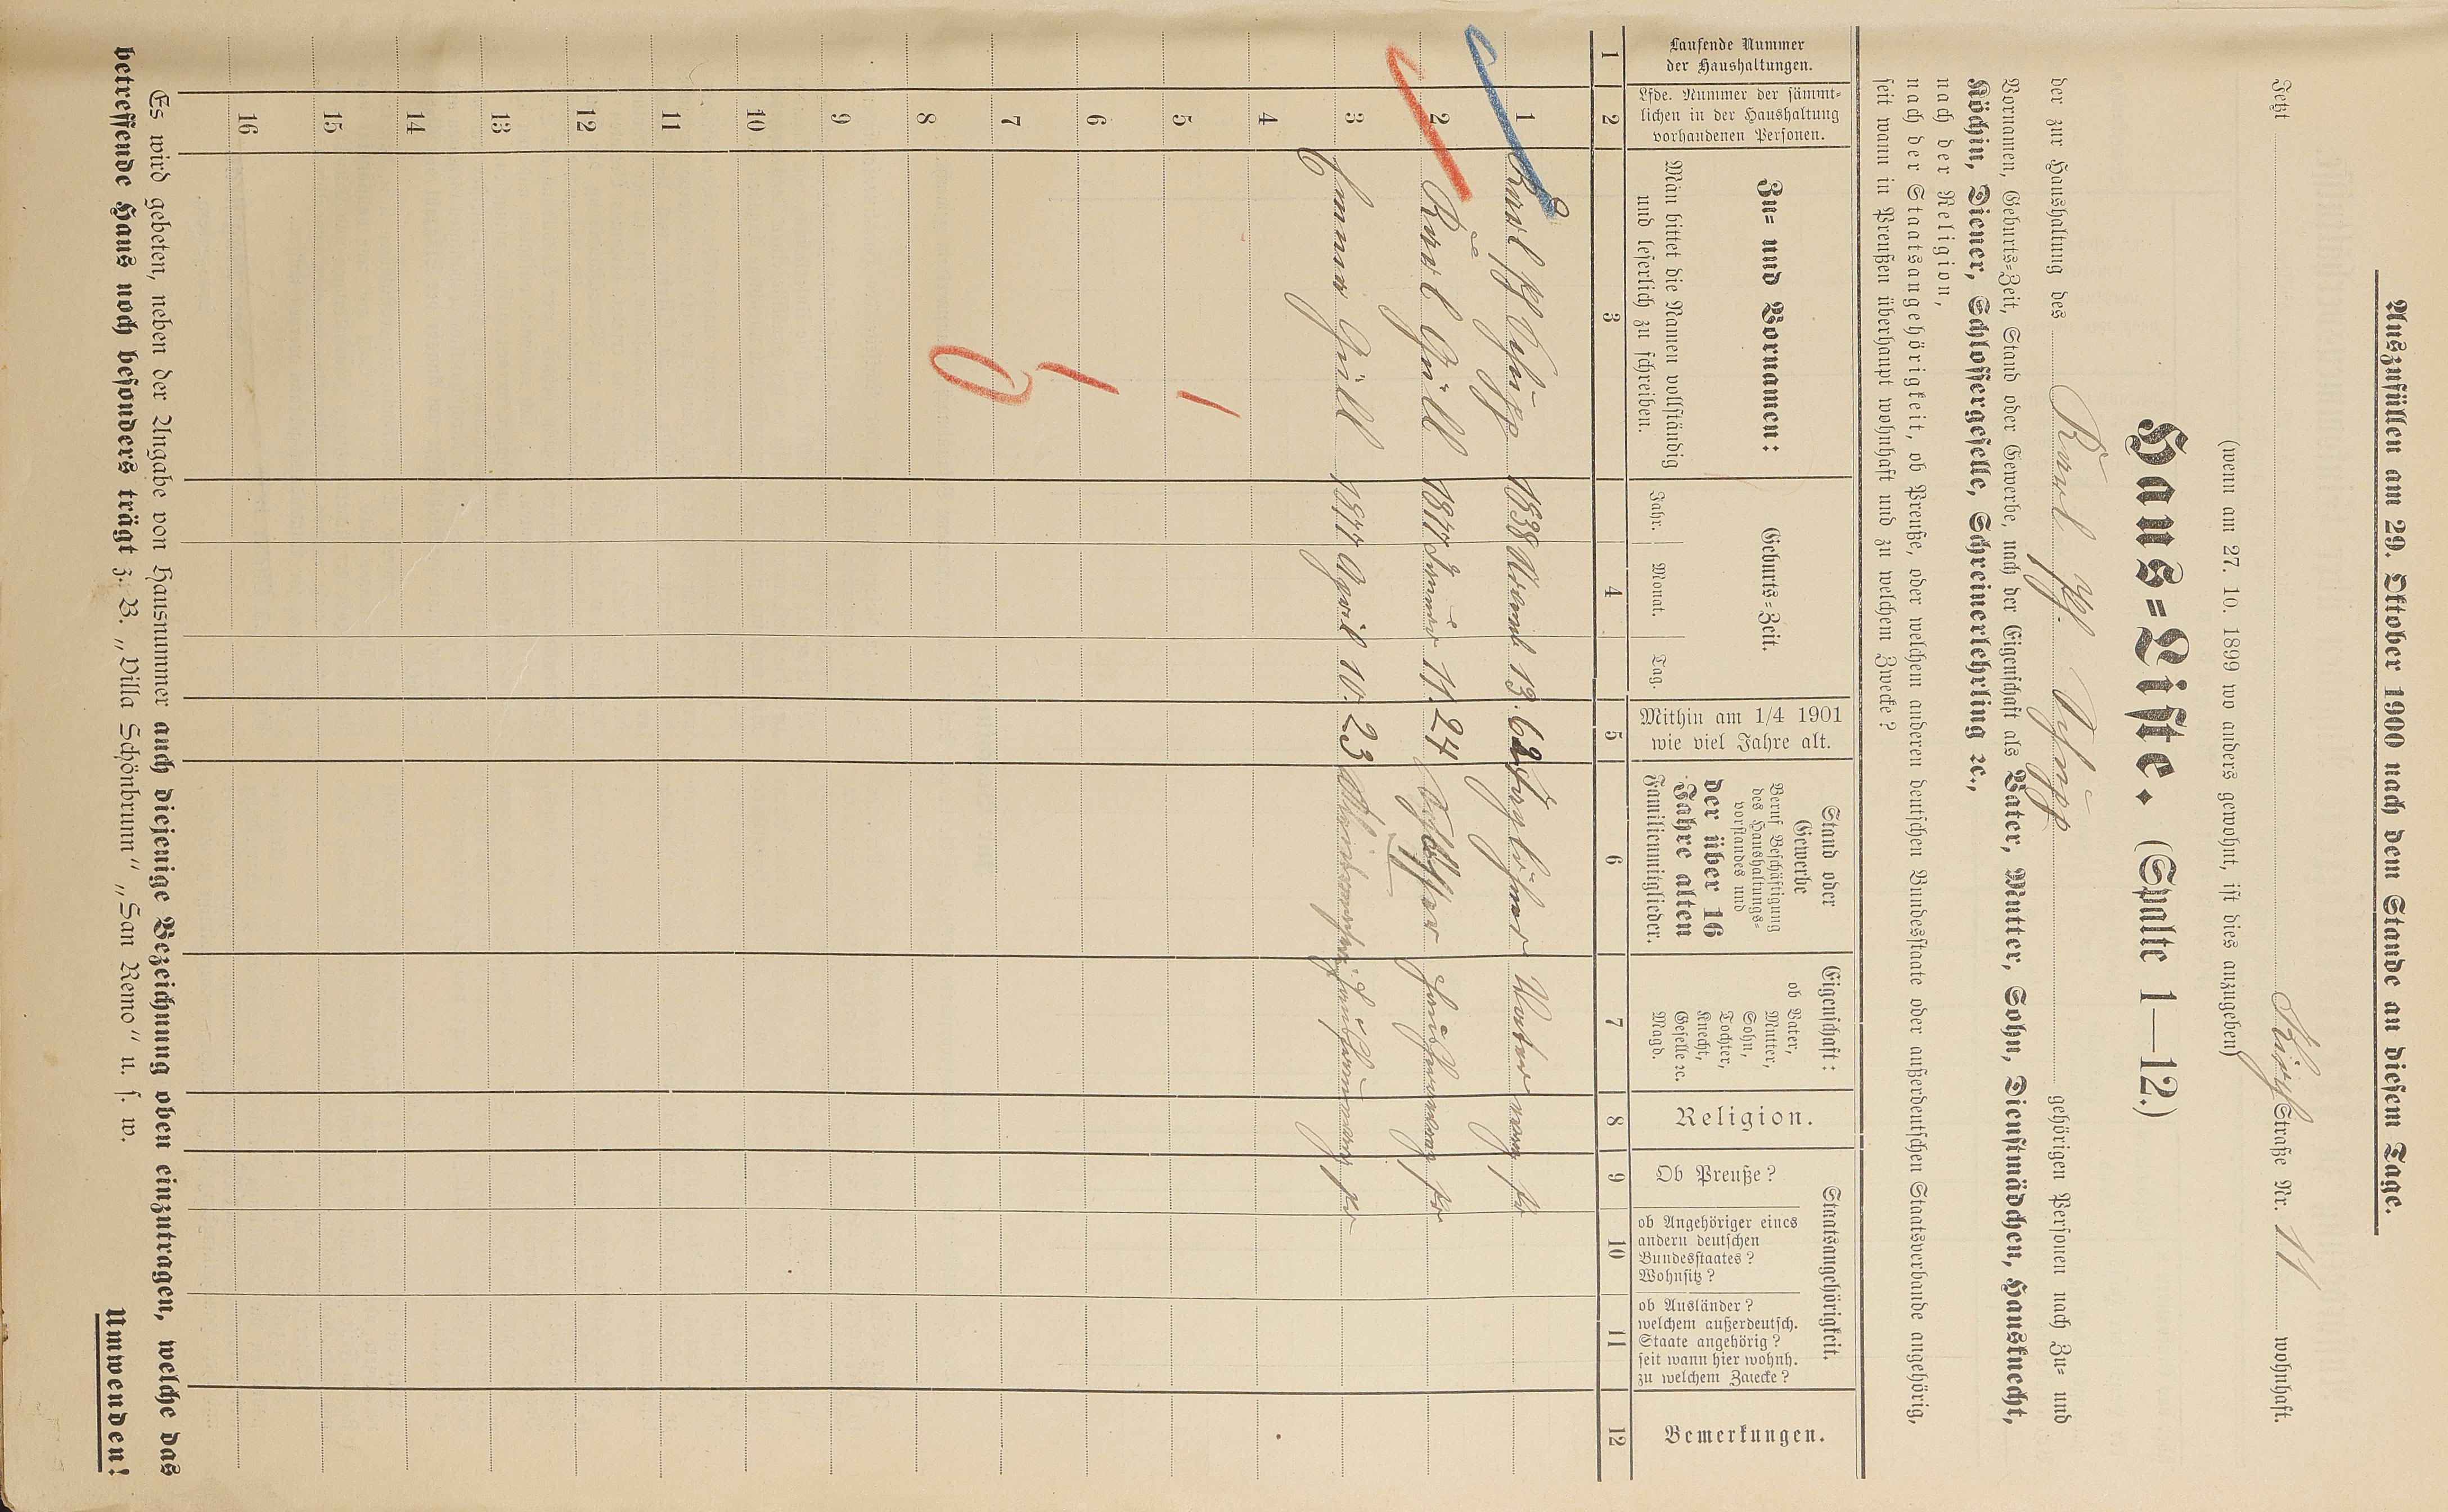 Auszufüllen am 29. Oktober 1900 nach dem Stande an diesem Tage.
Jetzt Straße Nr. 11 wohnhaft.
(wenn am 27. 10. 1899 wo anders gewohnt, ist dies anzugeben)
Haus=Liste. (Spalte 1—12.)
der zur Haushaltung des Karl gehörigen Personen nach Zu= und
Vornamen, Geburts=Zeit, Stand oder Gewerbe, nach der Eigenschaft als Vater, Mutter, Sohn, Dienstmädchen, Hausknecht,
Köchin, Diener, Schlossergeselle, Schreinerlehrling ꝛc.,
nach der Religion,
nach der Staatsangehörigkeit, ob Preuße, oder welchem anderen deutschen Bundesstaate oder außerdeutschen Staatsverbande angehörig,
seit wann in Preußen überhaupt wohnhaft und zu welchem Zwecke?
Laufende Nummer
der Haushaltungen.
Lfde. Nummer der sämmt=
lichen in der Haushaltung
vorhandenen Personen.
Zu= und Vornamen:
Man bittet die Namen vollständig
und leserlich zu schreiben.
Geburts=Zeit.
Jahr. Monat. Tag.
Mithin am 1/4 1901
wie viel Jahre alt.
Stand oder
Gewerbe
Beruf Beschäftigung
des Haushaltungs=
vorstandes und
der über 16
Jahre alten
Familienmitglieder.
Eigenschaft:
ob Vater,
Mutter,
Sohn,
Tochter,
Knecht,
Geselle ꝛc.
Magd.
Religion.
Staatsangehörigkeit.
Ob Preuße?
ob Angehöriger eines
andern deutschen
Bundesstaates?
Wohnsitz?
ob Ausländer?
welchem außerdeutsch.
Staate angehörig?
seit wann hier wohnh.
zu welchem Zwecke?
Bemerkungen.
1 2 3 4 5 6 7 8 9 10 11 12
1 Karl 1838 13. 62 Taglöhner Vater
2 Karl Güll 1877 Januar 11. 24
3 Emma Güll 1877 April 10. 23
4
5
6
7
8
9
10
11
12
13
14
15
16
Es wird gebeten, neben der Angabe von Hausnummer auch diejenige Bezeichnung oben einzutragen, welche das
betreffende Haus noch besonders trägt z. B. „Villa Schönbrunn" „San Remo" u. s. w.
Umwenden!